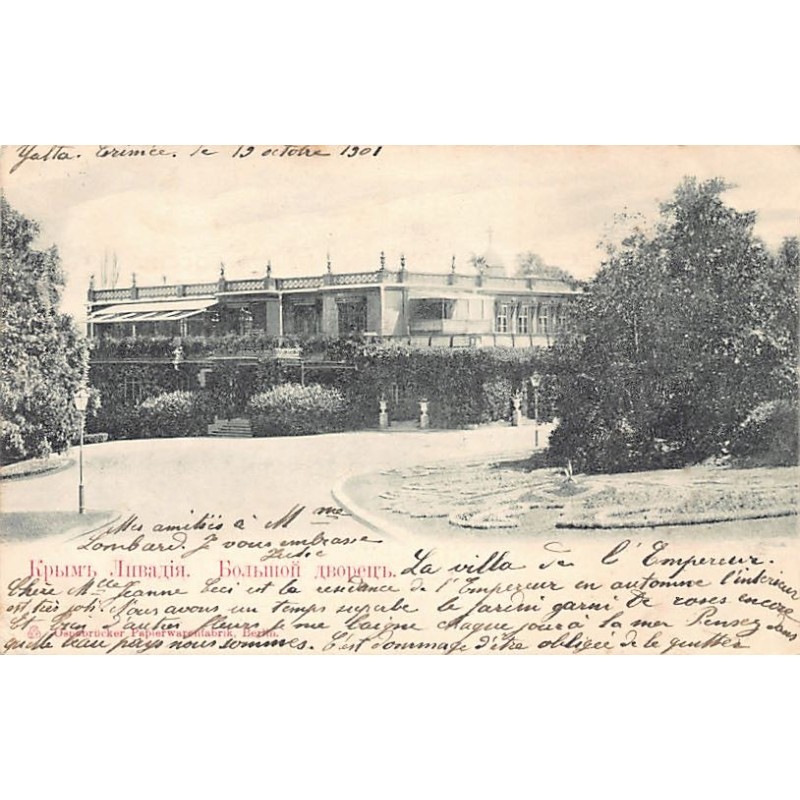 Yalta. Crimée. le 19 octobre 1901
Mes amitiés à Mme
Lombard. Je vous embrasse
Крымъ Ливадія. Большой дворецъ. La villa de l'Empereur.
Chère Mlle Jeanne Ceci est la residance de l'Empereur en automne l'interieur
est très joli Nous avons un temps superbe le jardin garni de roses encore
Et bien d'autres fleurs je me baigne chaque jour à la mer Pensez dans
Osnabrücker Papierwarenfabrik, Berlin.
quelle beau pays nous sommes. C'est dommage d'être obligée de le quitter